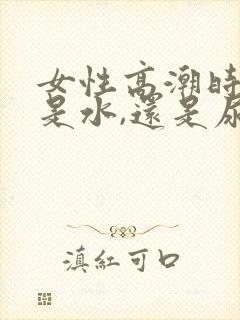 女性高潮時
是水,還是尿
滇紅可口